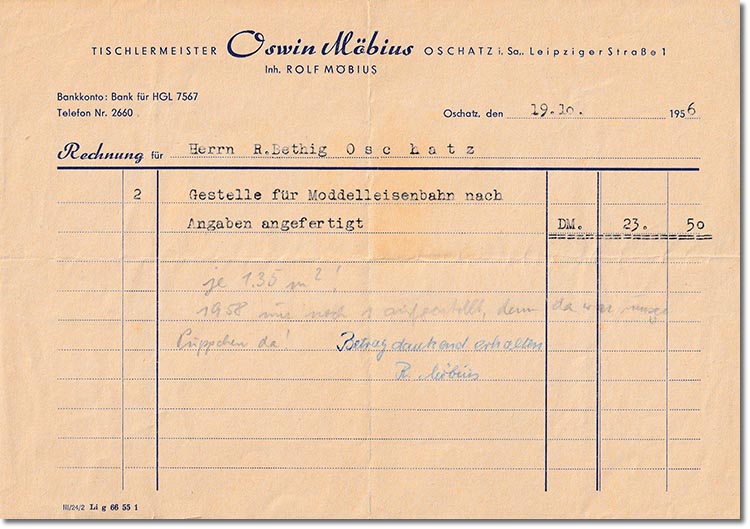 TISCHLERMEISTER Oswin Möbius OSCHATZ i. Sa., Leipziger Straße 1
Inh. ROLF MÖBIUS
Bankkonto: Bank für HGL 7567
Telefon Nr. 2660
Oschatz, den 19.10. 1956
Rechnung für Herrn R.Bethig Oschatz
2 Gestelle für Moddelleisenbahn nach
Angaben angefertigt DM. 23. 50
je 1.35 m²!
1958 nur noch 1 aufgestellt, denn da war unser
Püppchen da!
Betrag dankend erhalten
R. Möbius
III/24/2 Li g 66 55 1